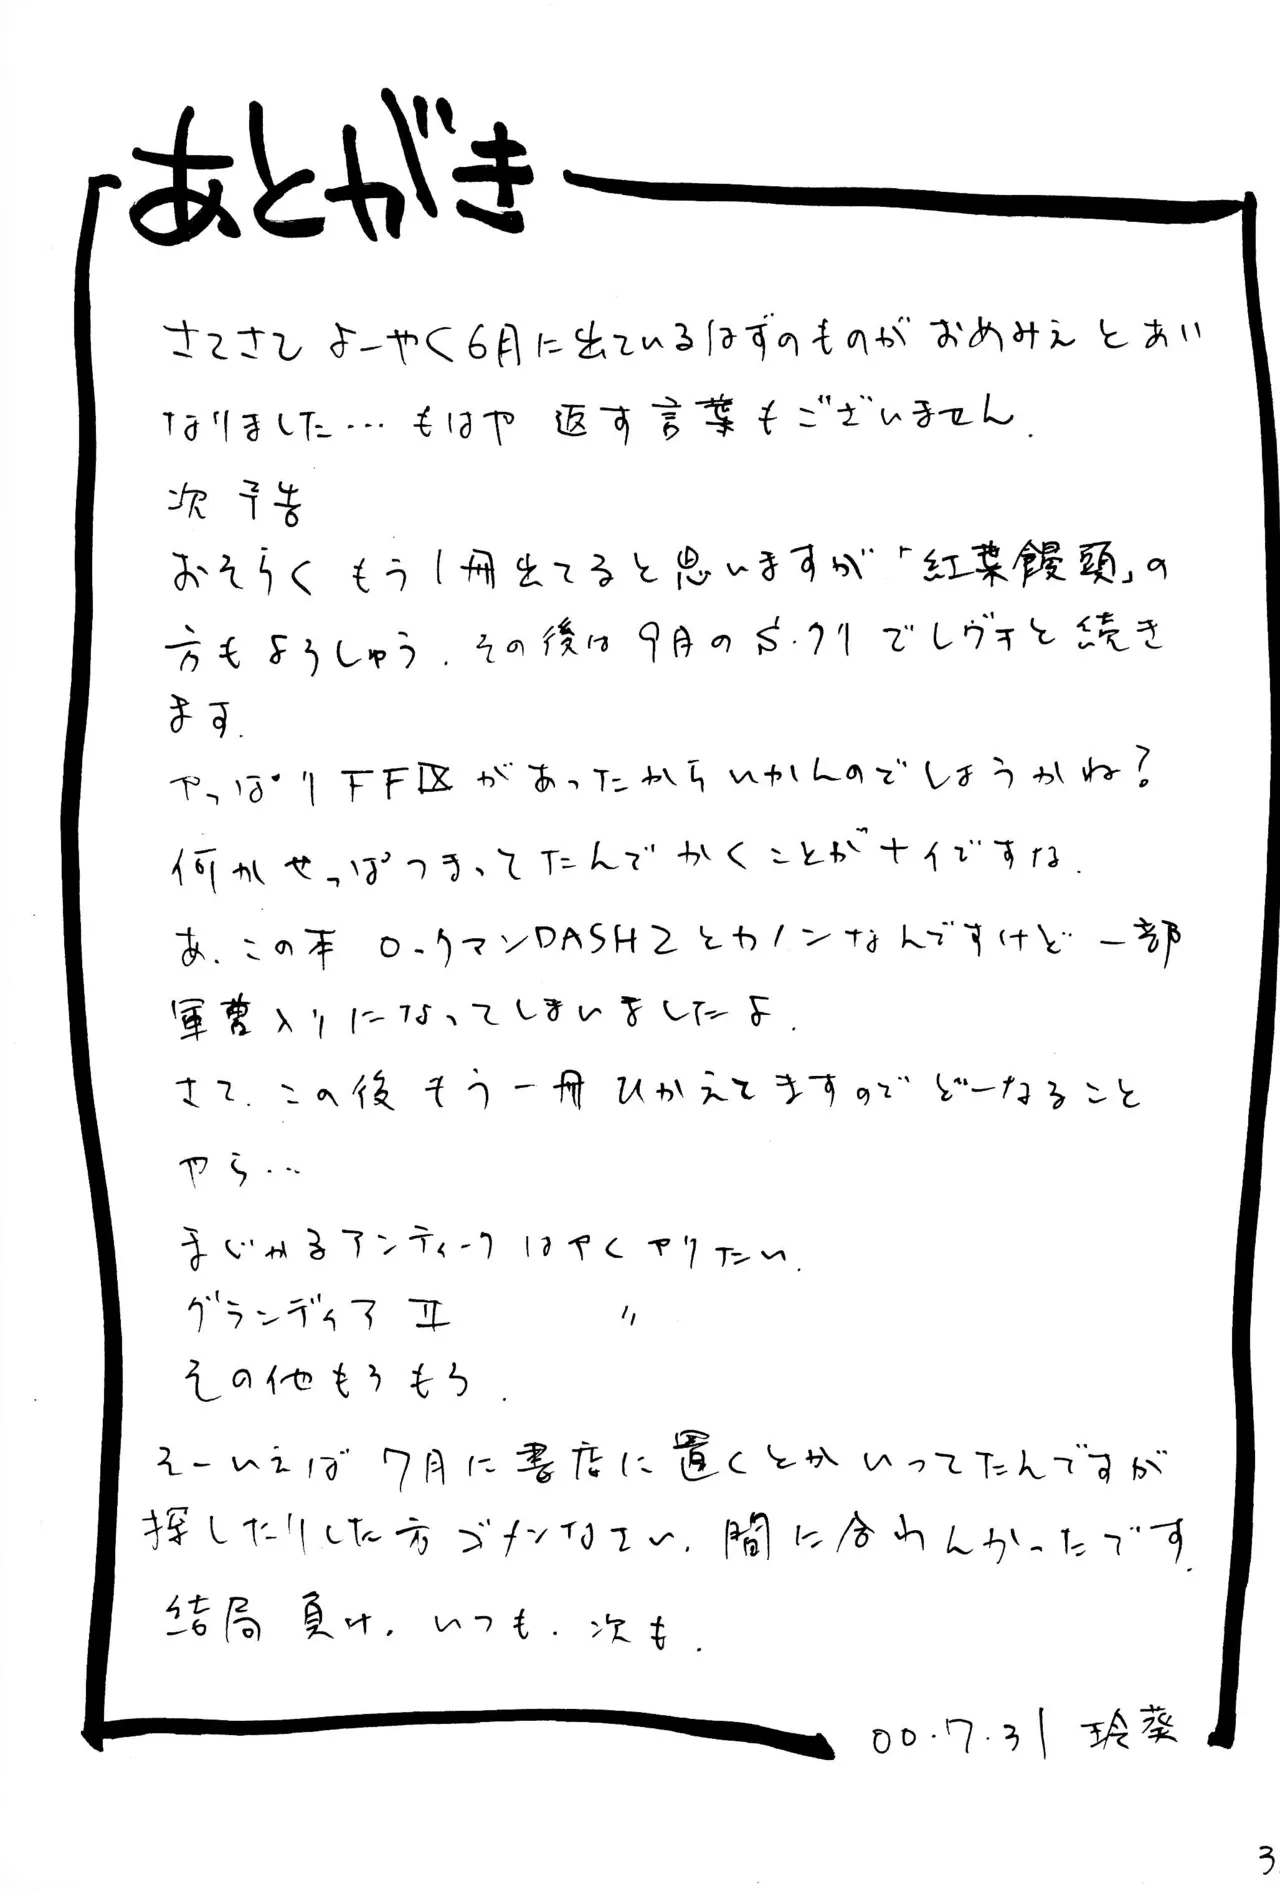 あとがき
さてさて よーやく6月に出ているはずのものが おめみえ とあい
なりました… もはや 返す言葉もございません.
次 予告
おそらく もう1冊出てると思いますが「紅葉饅頭」の
方もよろしゅう. その後は 9月のS.クリ でレヴォと続き
ます.
やっぱり FFⅨがあったからいかんのでしょうかね?
何かせっぱつまってたんで かくことがナイですな.
あ. この本 ロックマンDASH2とカノンなんですけど 一部
軍曹入りになってしまいましたよ.
さて. この後 もう一冊 ひかえてますので どーなること
やら…
まじかるアンティーク はやくやりたい.
グランディア Ⅱ 〃
その他もろもろ.
そーいえば 7月に書店に置くとかいってたんですが
探したりした方ゴメンなさい. 間に合わんかったです.
結局 負け. いつも. 次も.
00.7.31 玲葵
3